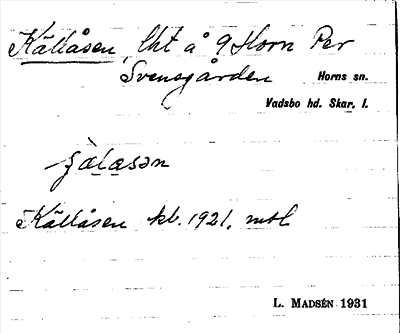 Källåsen, lht å 9 Horn Per
Svensgården Horns sn.
Vadsbo hd. Skar. l.
Källåsen kb. 1921. mtl
L. MADSÉN 1931